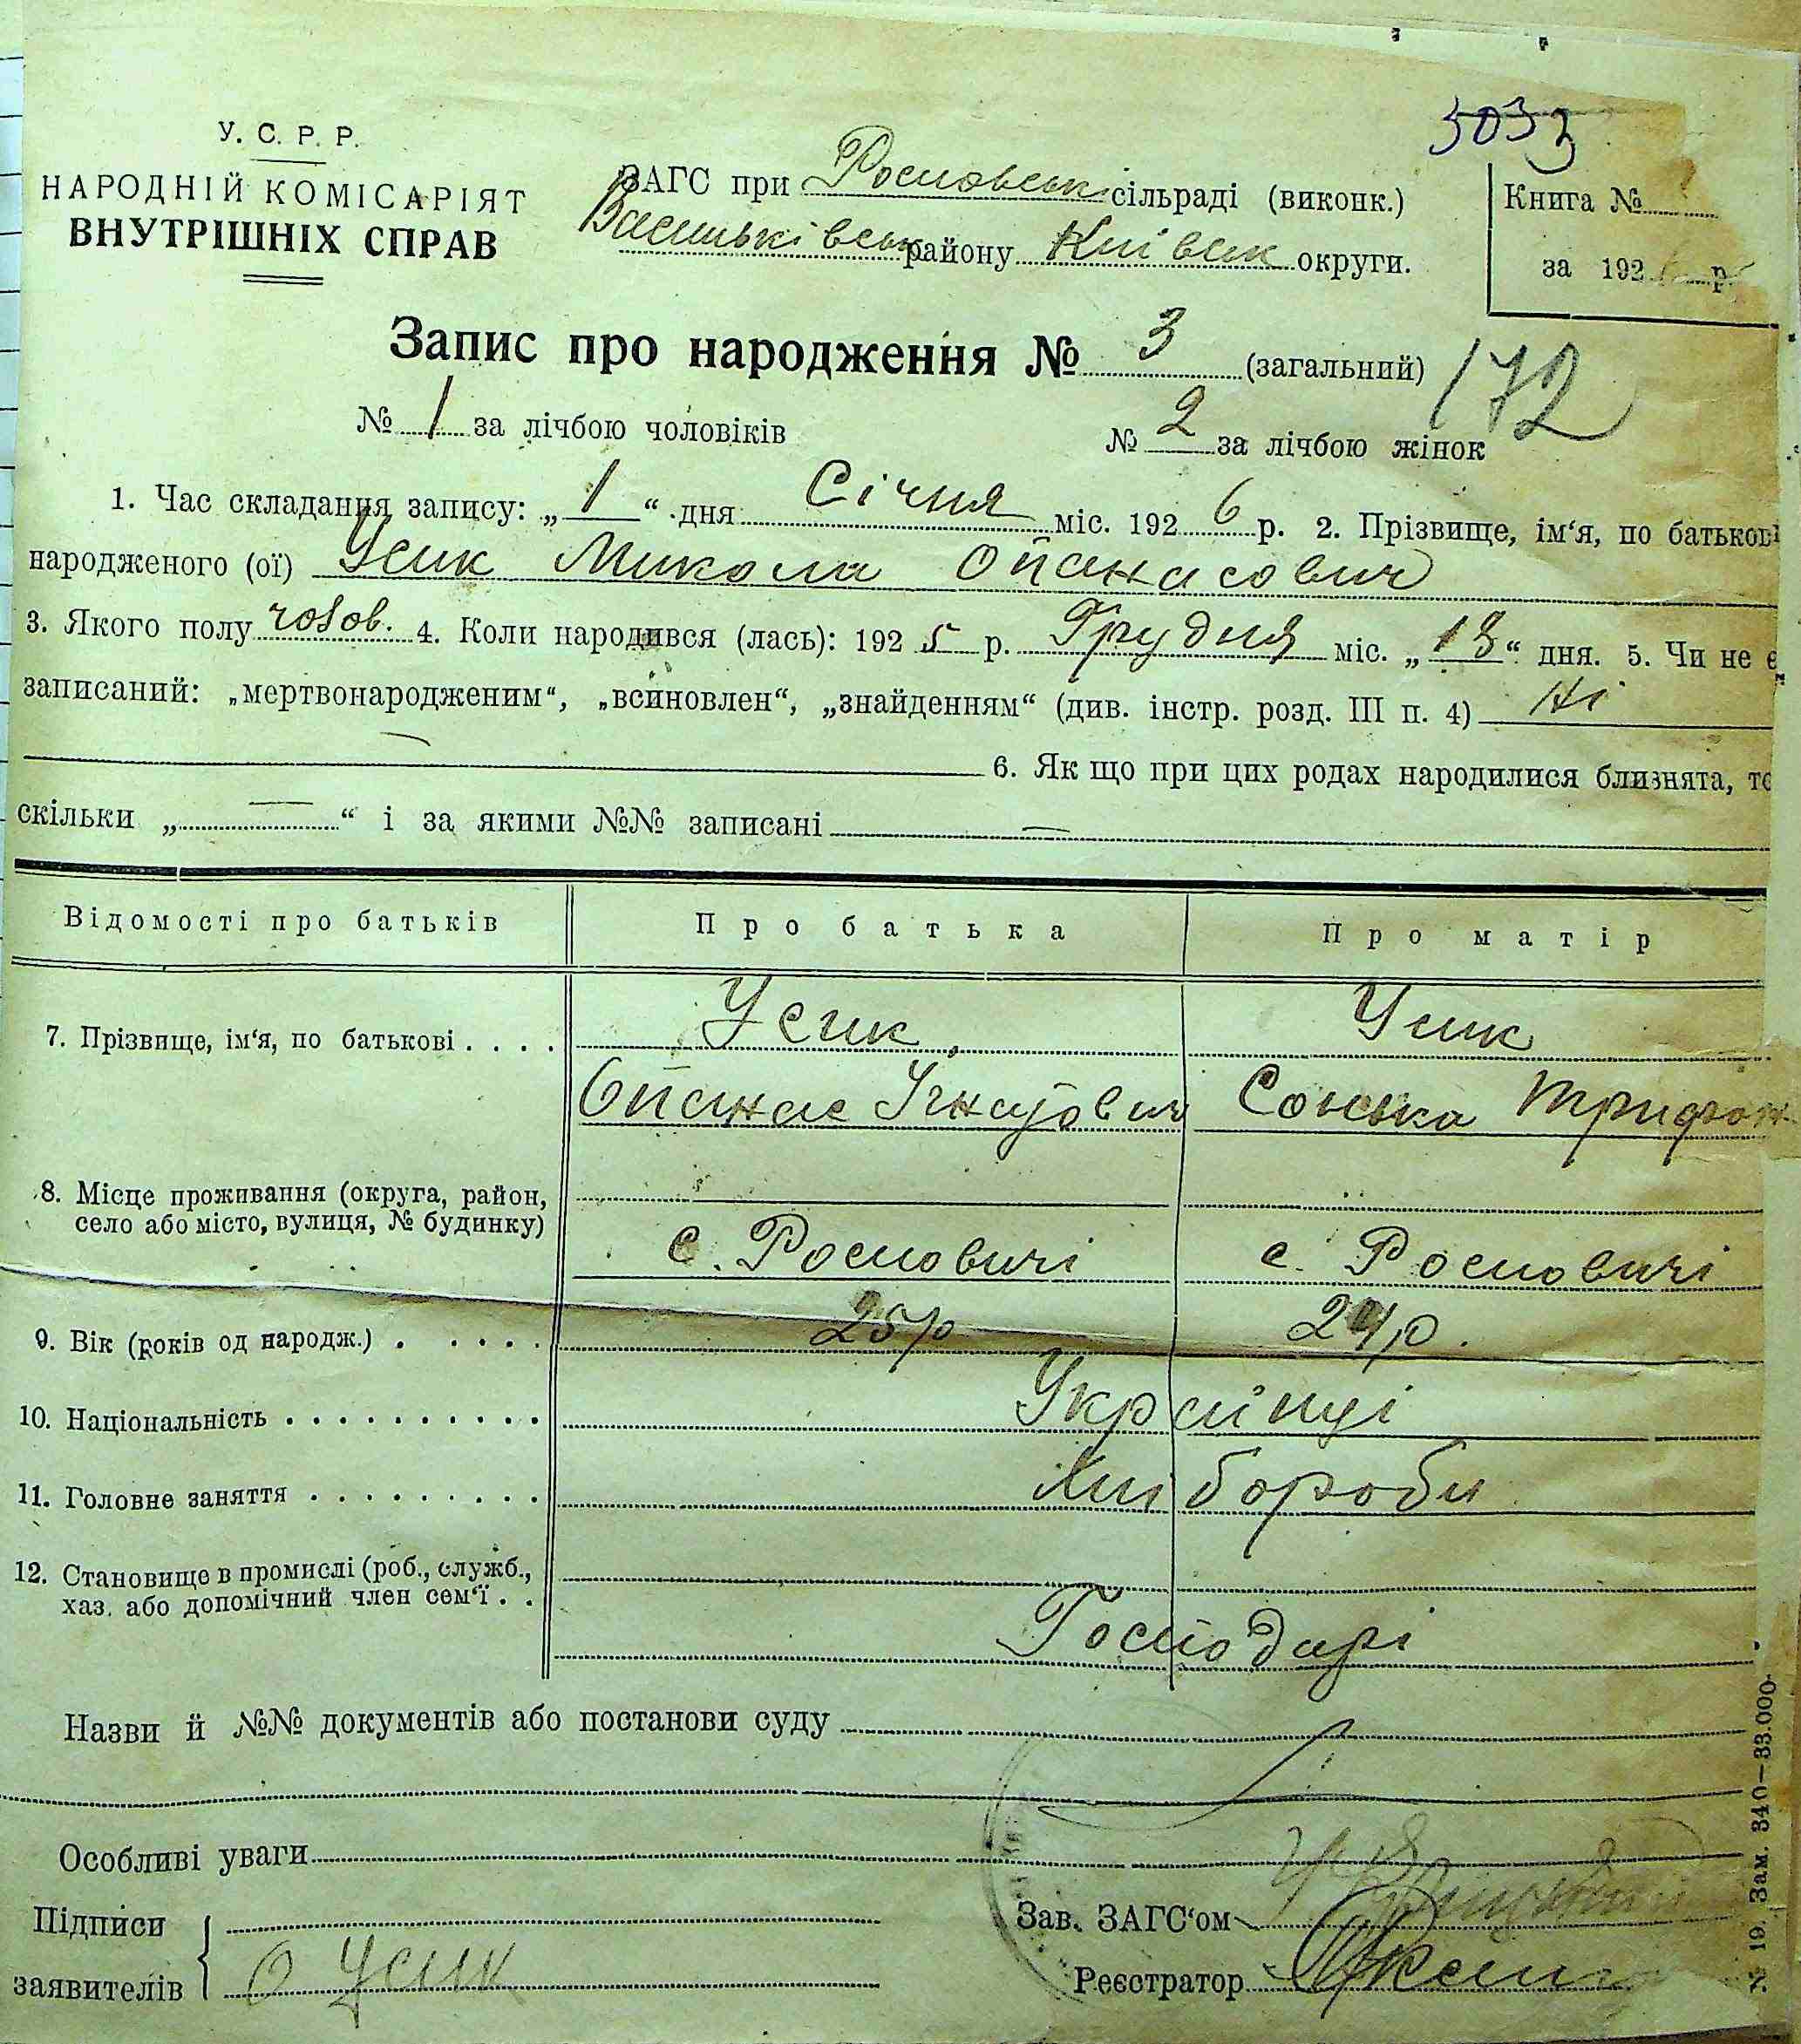 5033
У. С. Р. Р.
НАРОДНІЙ КОМІСАРІЯТ
ВНУТРІШНІХ СПРАВ
ЗАГС при Росновськ сільраді (виконк.)
Васильківськ району Київськ округи.
Книга №
за 192 р.
Запис про народження № 3 (загальний)
172
№ 1 за лічбою чоловіків № 2 за лічбою жінок
1. Час складання запису: „1“ дня Січня міс. 1926 р. 2. Прізвище, ім‘я, по батькові
народженого (ої) Усик Микола Опанасович
3. Якого полу чолов. 4. Коли народився (лась): 1925 р. Грудня міс. „13“ дня. 5. Чи не є
записаний: „мертвонародженим“, „всиновлен“, „знайденням“ (див. інстр. розд. III п. 4) Ні
6. Як що при цих родах народилися близнята, то
скільки „—“ і за якими №№ записані —
Відомості про батьків Про батька Про матір
7. Прізвище, ім‘я, по батькові . . . . Усик, Усик
Опанас Ігнатович Сонька Трифон
8. Місце проживання (округа, район,
село або місто, вулиця, № будинку)
с. Росновичі с. Росновичі
9. Вік (років од народж.) . . . . . 25р 24р.
10. Національність . . . . . . . . . . Українці
11. Головне заняття . . . . . . . . . Хлібороби
12. Становище в промислі (роб., служб.,
хаз. або допомічний член сем‘ї . .
Господарі
Назви й №№ документів або постанови суду
Особливі уваги
Підписи
заявителів О Усик
Зав. ЗАГС‘ом
Реєстратор
№ 19. Зам. 340—33.000